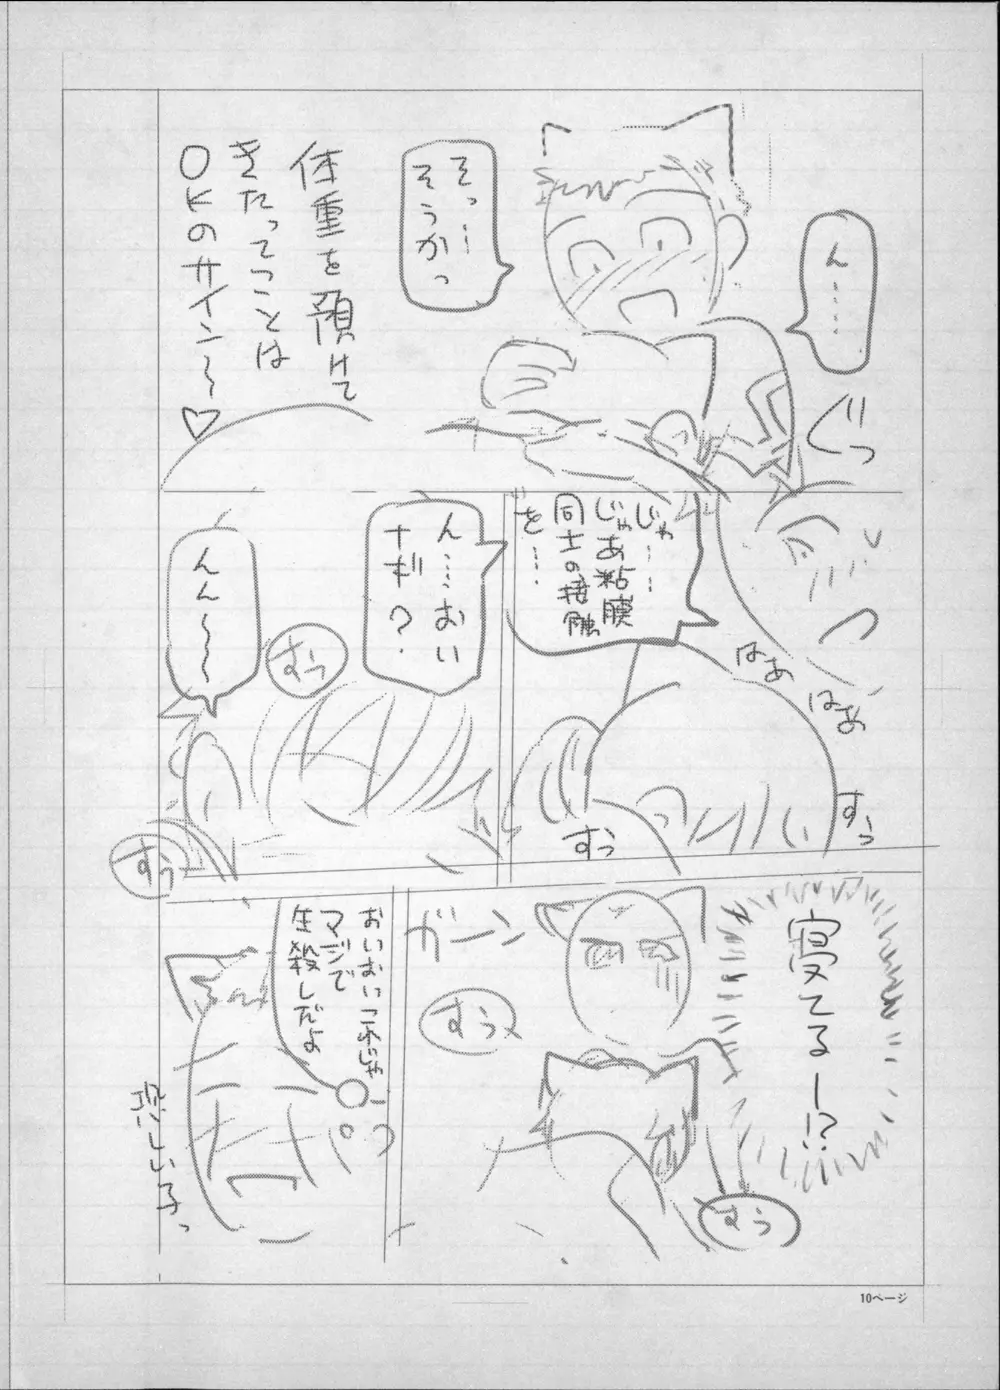 ん……
ぐっ
そっ…
そうかっ
体重を預けて
きたってことは
OKのサイン〜〜♡
じゃ……
じゃあ粘膜
同士の接触
を……
はあ
はあ
すぅ
すぅ
ん……おい
ナギ?
すぅ
んん〜〜〜
すぅ
寝てるー!?
ガーン
すぅ
すぅ
おいおいこれじゃ
マジで
生殺しだよ